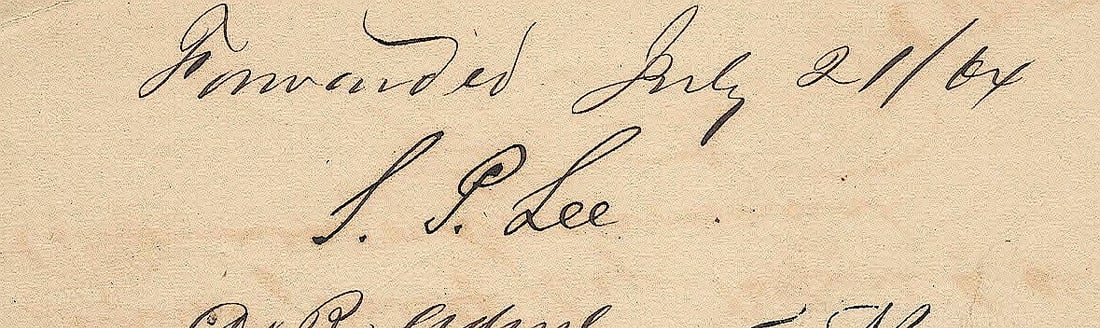 Forwarded July 21/64
S. P. Lee